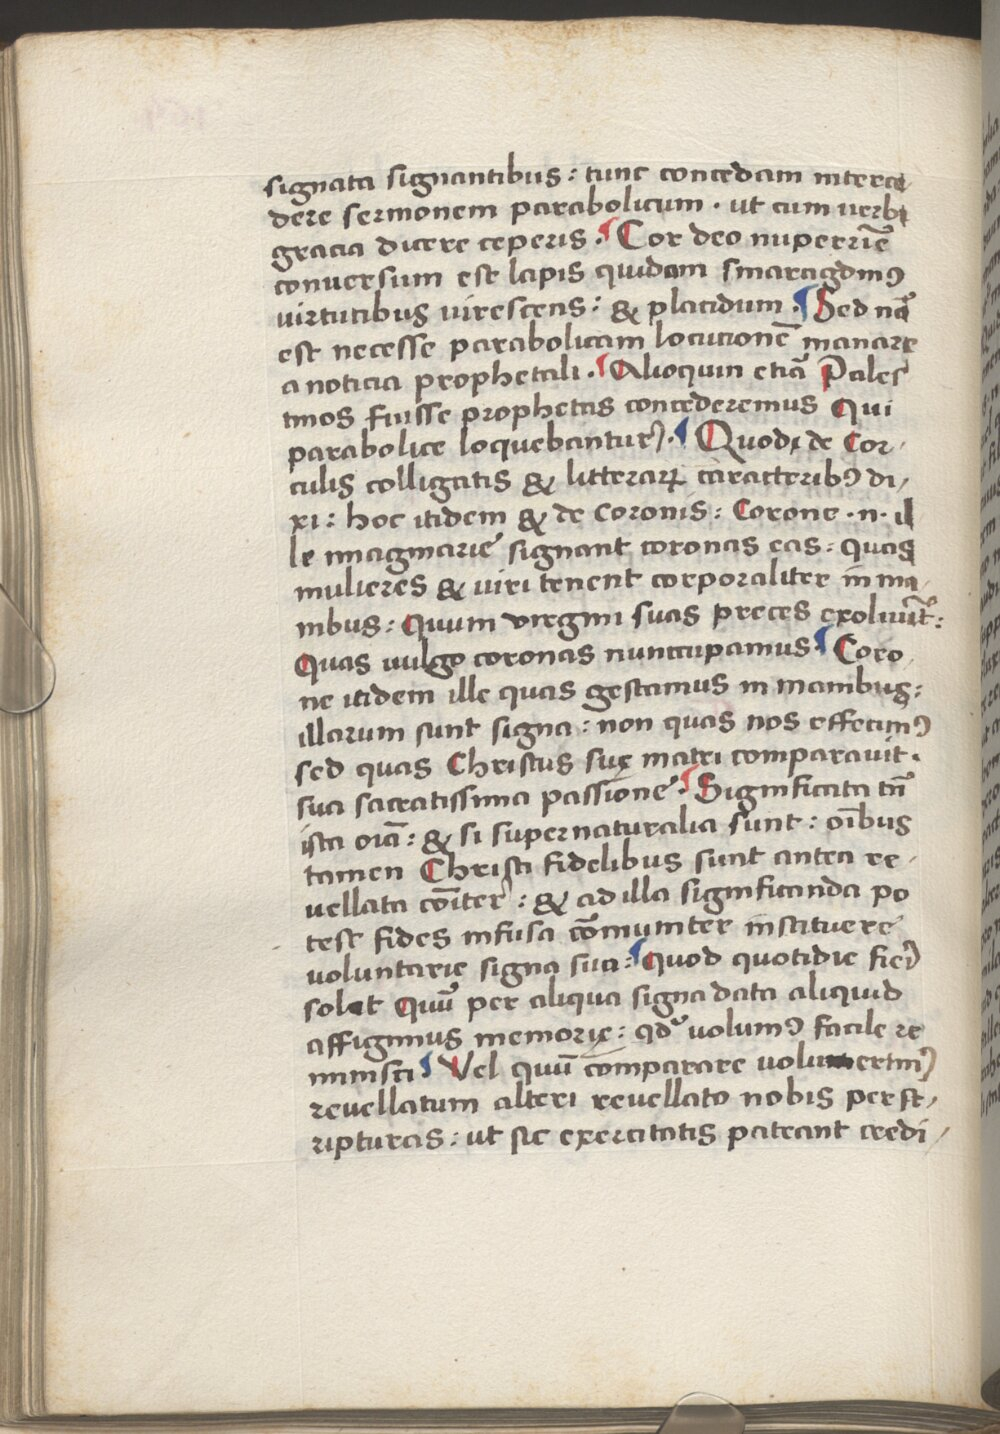 signata signantibus : tunc concedam interce
dere sermonem parabolicum . ut cum verbi
gracia dicere ceperis . Cor deo nuperriē
conversum est lapis quidam smaragdinꝰ
virtutibus virescens : & placidum . Sed nō
est necesse parabolicam locutionē manare
a noticia prophetali . Alioquin etiā Pales
tinos fuisse prophetas concederemus Qui
parabolice loquebantur . Quodꝫ de Cor-
culis colligatis & litterarꝝ caracteribꝰ di-
xi : hoc itidem & de coronis : Corone .n. il
le imaginarie signant coronas eas : quas
mulieres & viri tenent corporaliter in ma-
nibus : Quum virgini suas preces exolvūt :
Quas vulgo coronas nunccupamus Coro-
ne itidem ille quas gestamus in manibus :
illarum sunt signa : non quas nos effecimꝰ
sed quas Christus suę matri comparavit .
sua sacratissima passione . Significata tn̄
ista oīa : & si supernaturalia sunt : oībus
tamen Christi fidelibus sunt antea re-
vellata cōiter : & ad illa significanda po
test fides infusa cōmuniter instituere
voluntarie signa sua : Quod quotidie fieri
solet Quū per aliqua signa data aliquid
affigimus memorię : qd volumꝰ facile re
minisci Vel quū comparare voluerimꝰ
revellatum alteri revellato nobis per sc-
ripturas : ut sic exercitatis pateant credi-